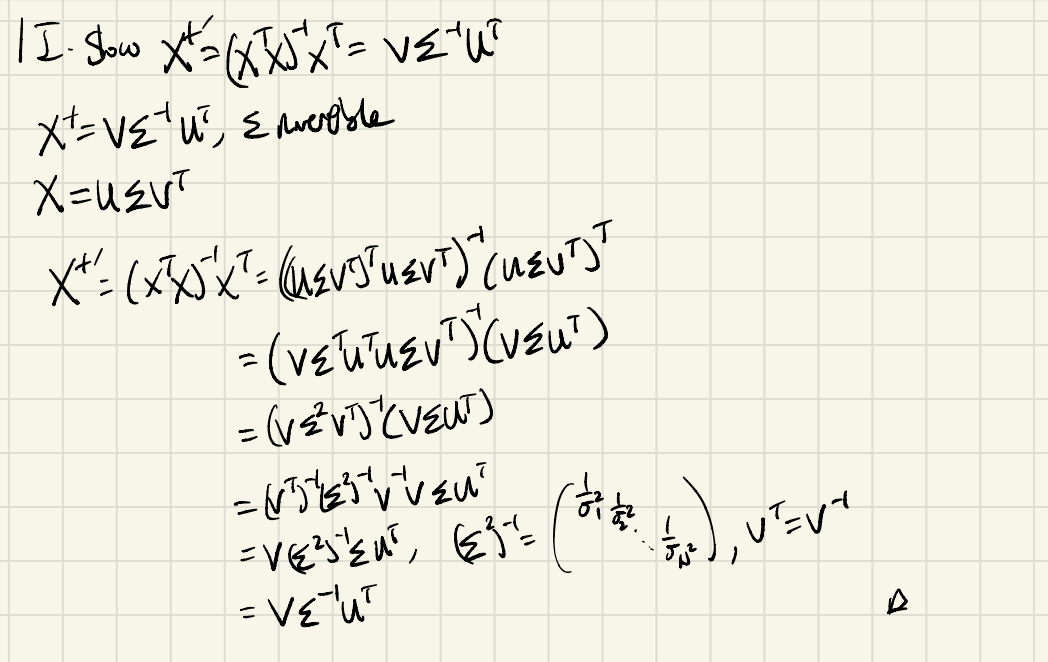 1 I. Show X⁺′ = (XᵀX)⁻¹Xᵀ = VΣ⁻¹Uᵀ
X⁺ = VΣ⁻¹Uᵀ, Σ invertible
X = UΣVᵀ
X⁺′ = (XᵀX)⁻¹Xᵀ = ((UΣVᵀ)ᵀUΣVᵀ)⁻¹(UΣVᵀ)ᵀ
= (VΣᵀUᵀUΣVᵀ)⁻¹(VΣUᵀ)
= (VΣ²Vᵀ)⁻¹(VΣUᵀ)
= (Vᵀ)⁻¹(Σ²)⁻¹V⁻¹VΣUᵀ
= V(Σ²)⁻¹ΣUᵀ, (Σ²)⁻¹ = (1/σ₁² 1/σ₂² ⋱ 1/σ_N²), Vᵀ = V⁻¹
= VΣ⁻¹Uᵀ